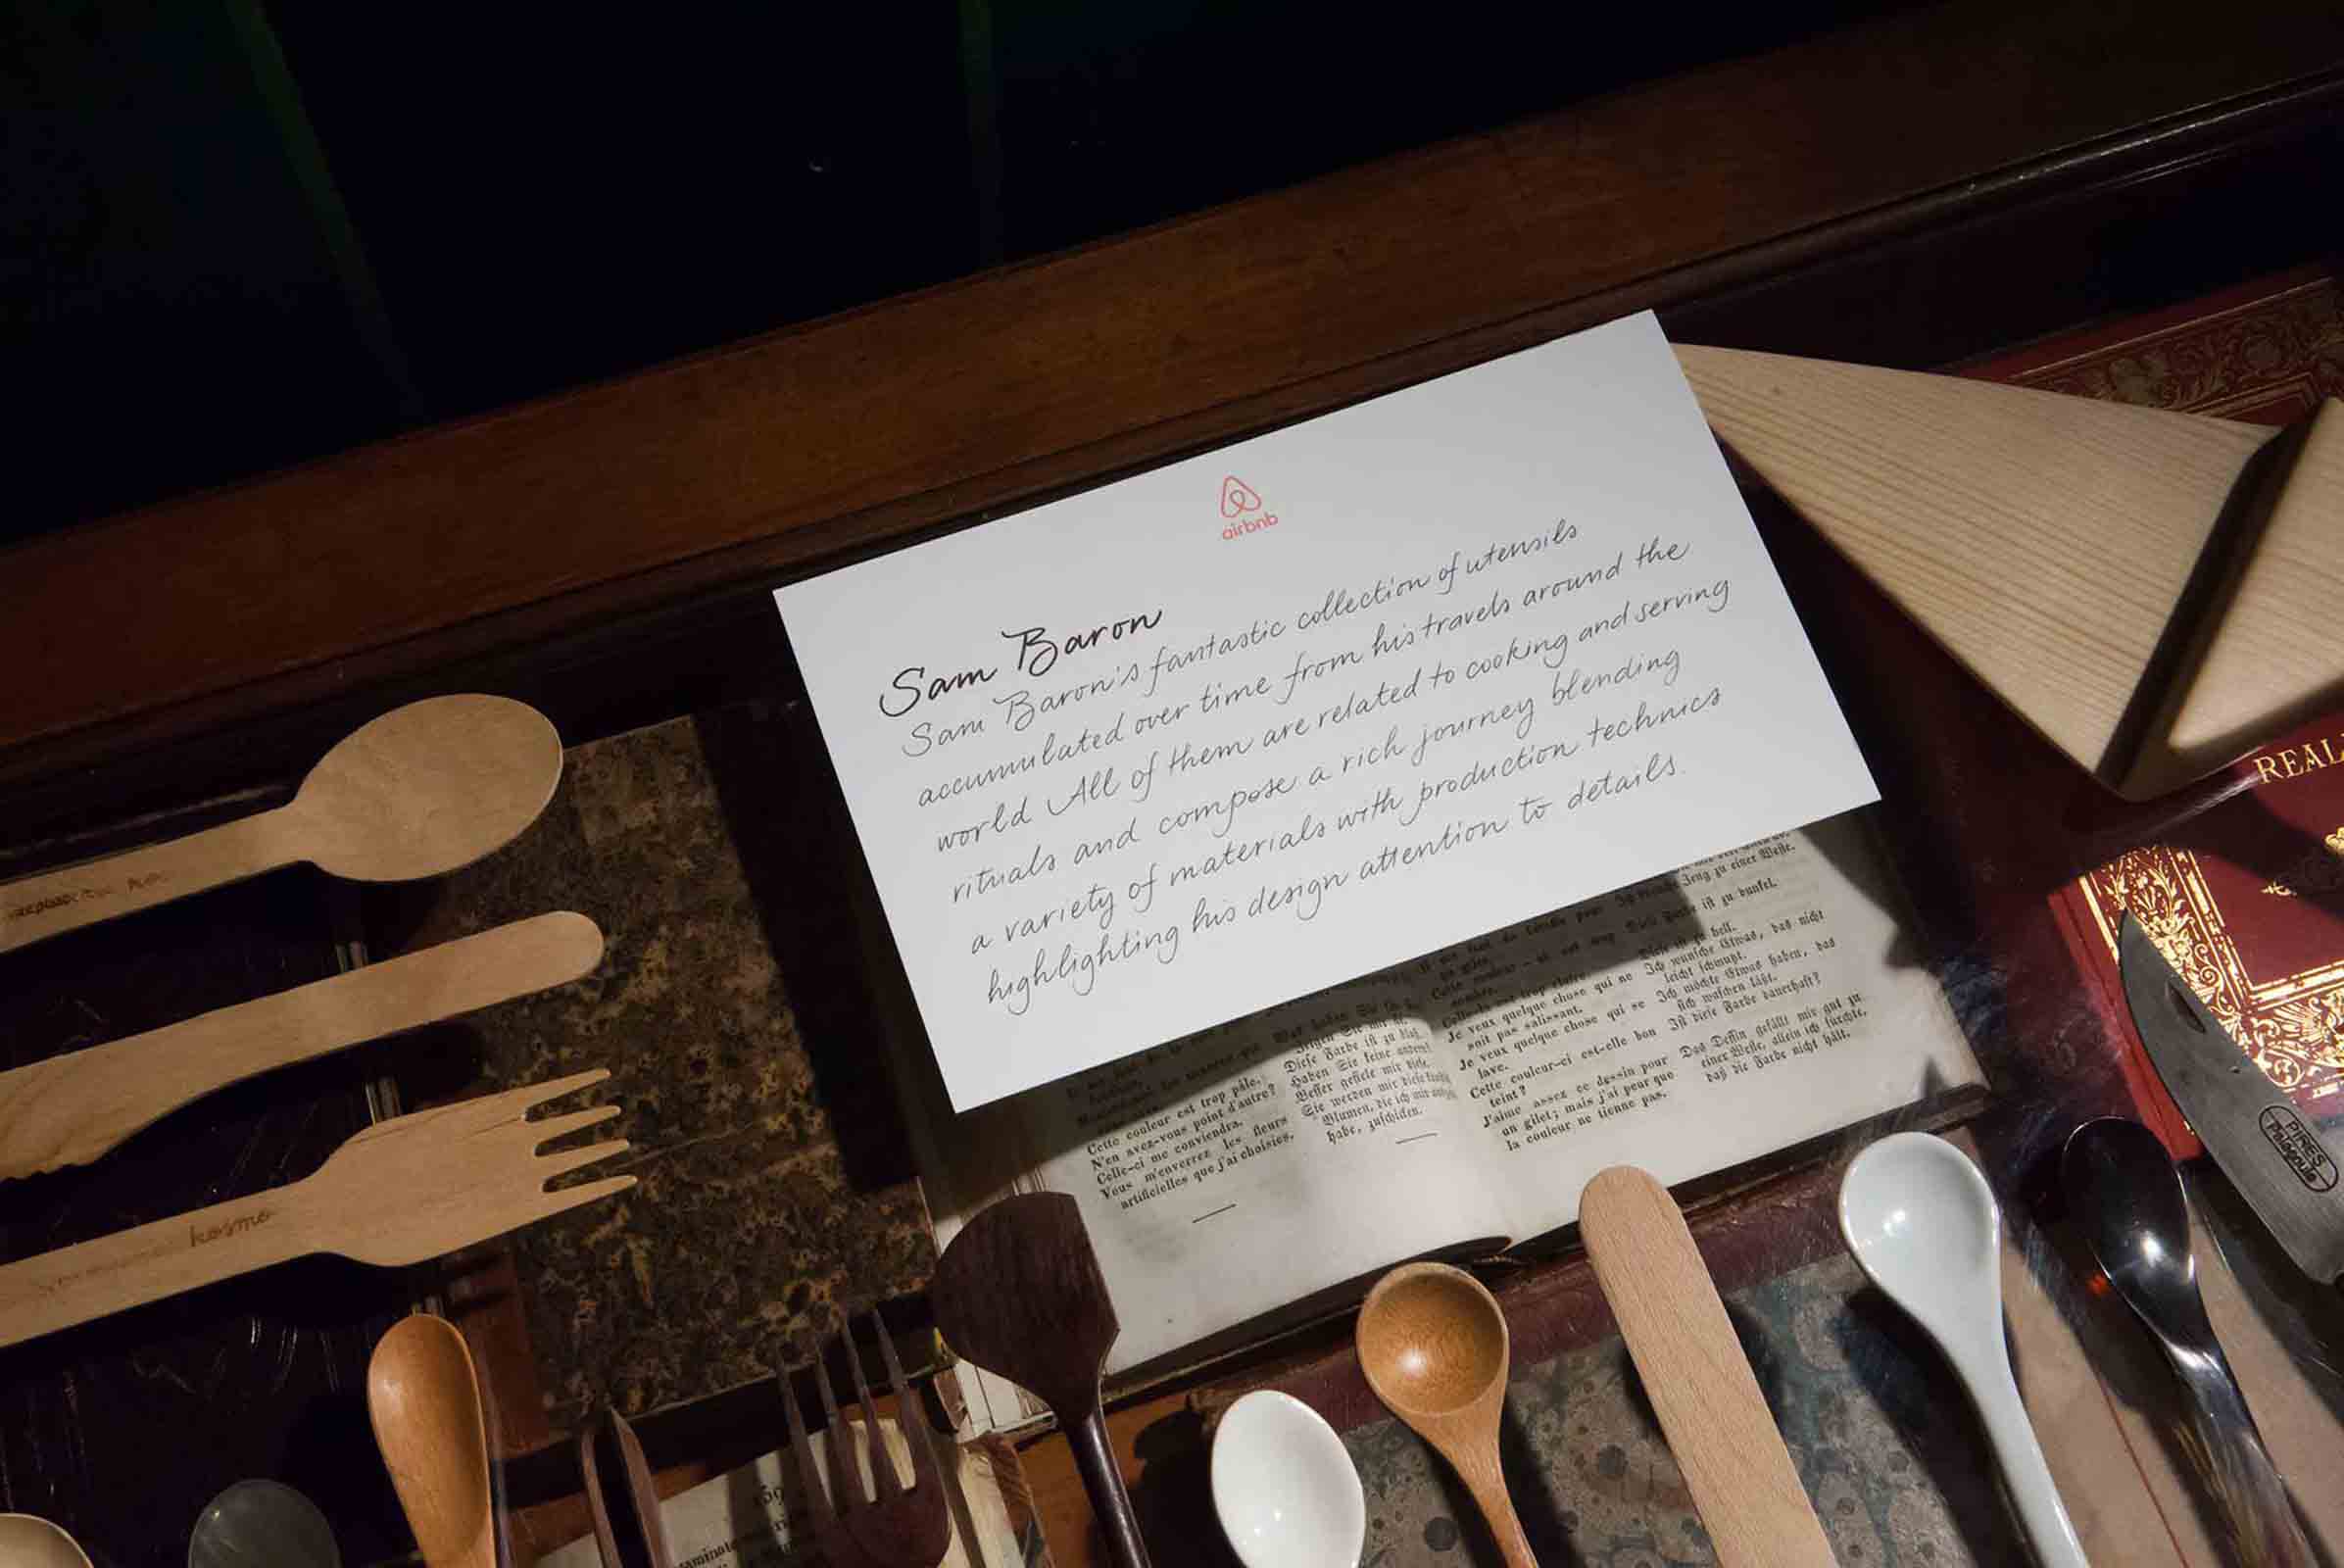 airbnb
Sam Baron
Sam Baron's fantastic collection of utensils
accumulated over time from his travels around the
world All of them are related to cooking and serving
rituals and compose a rich journey blending
a variety of materials with production technics
highlighting his design attention to details.
kosmo
REAL
PIRES
Palaçoulo
Cette couleur est trop pâle.
N'en avez-vous point d'autre?
Celle-ci me conviendra.
Vous m'enverrez les fleurs
artificielles que j'ai choisies.
Diese Farbe ist zu blaß.
Haben Sie keine andere?
Besser gefiele mir diese.
Sie werden mir diese
Blumen, die ich mir
habe, zuschicken.
Je veux quelque chose qui ne
soit pas salissant.
Je veux quelque chose qui se
lave.
Cette couleur-ci est-elle bon
teint?
J'aime assez ce dessin pour
un gilet; mais j'ai peur que
la couleur ne tienne pas.
Zeug zu einer Weste.
Diese Farbe ist zu dunkel.
Diese ist zu hell.
Ich wünsche Etwas, das nicht
leicht schmutzt.
Ich möchte Etwas haben, das
sich waschen läßt.
Ist diese Farbe dauerhaft?
Das Dessin gefällt mir gut zu
einer Weste, allein ich fürchte,
daß die Farbe nicht hält.